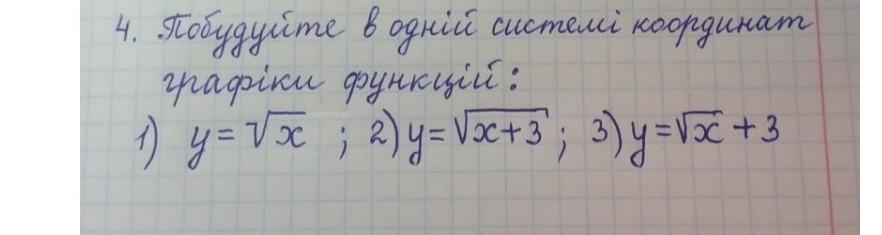 4. Побудуйте в одній системі координат
графіки функцій:
1) y = √x ; 2) y = √x+3 ; 3) y = √x + 3